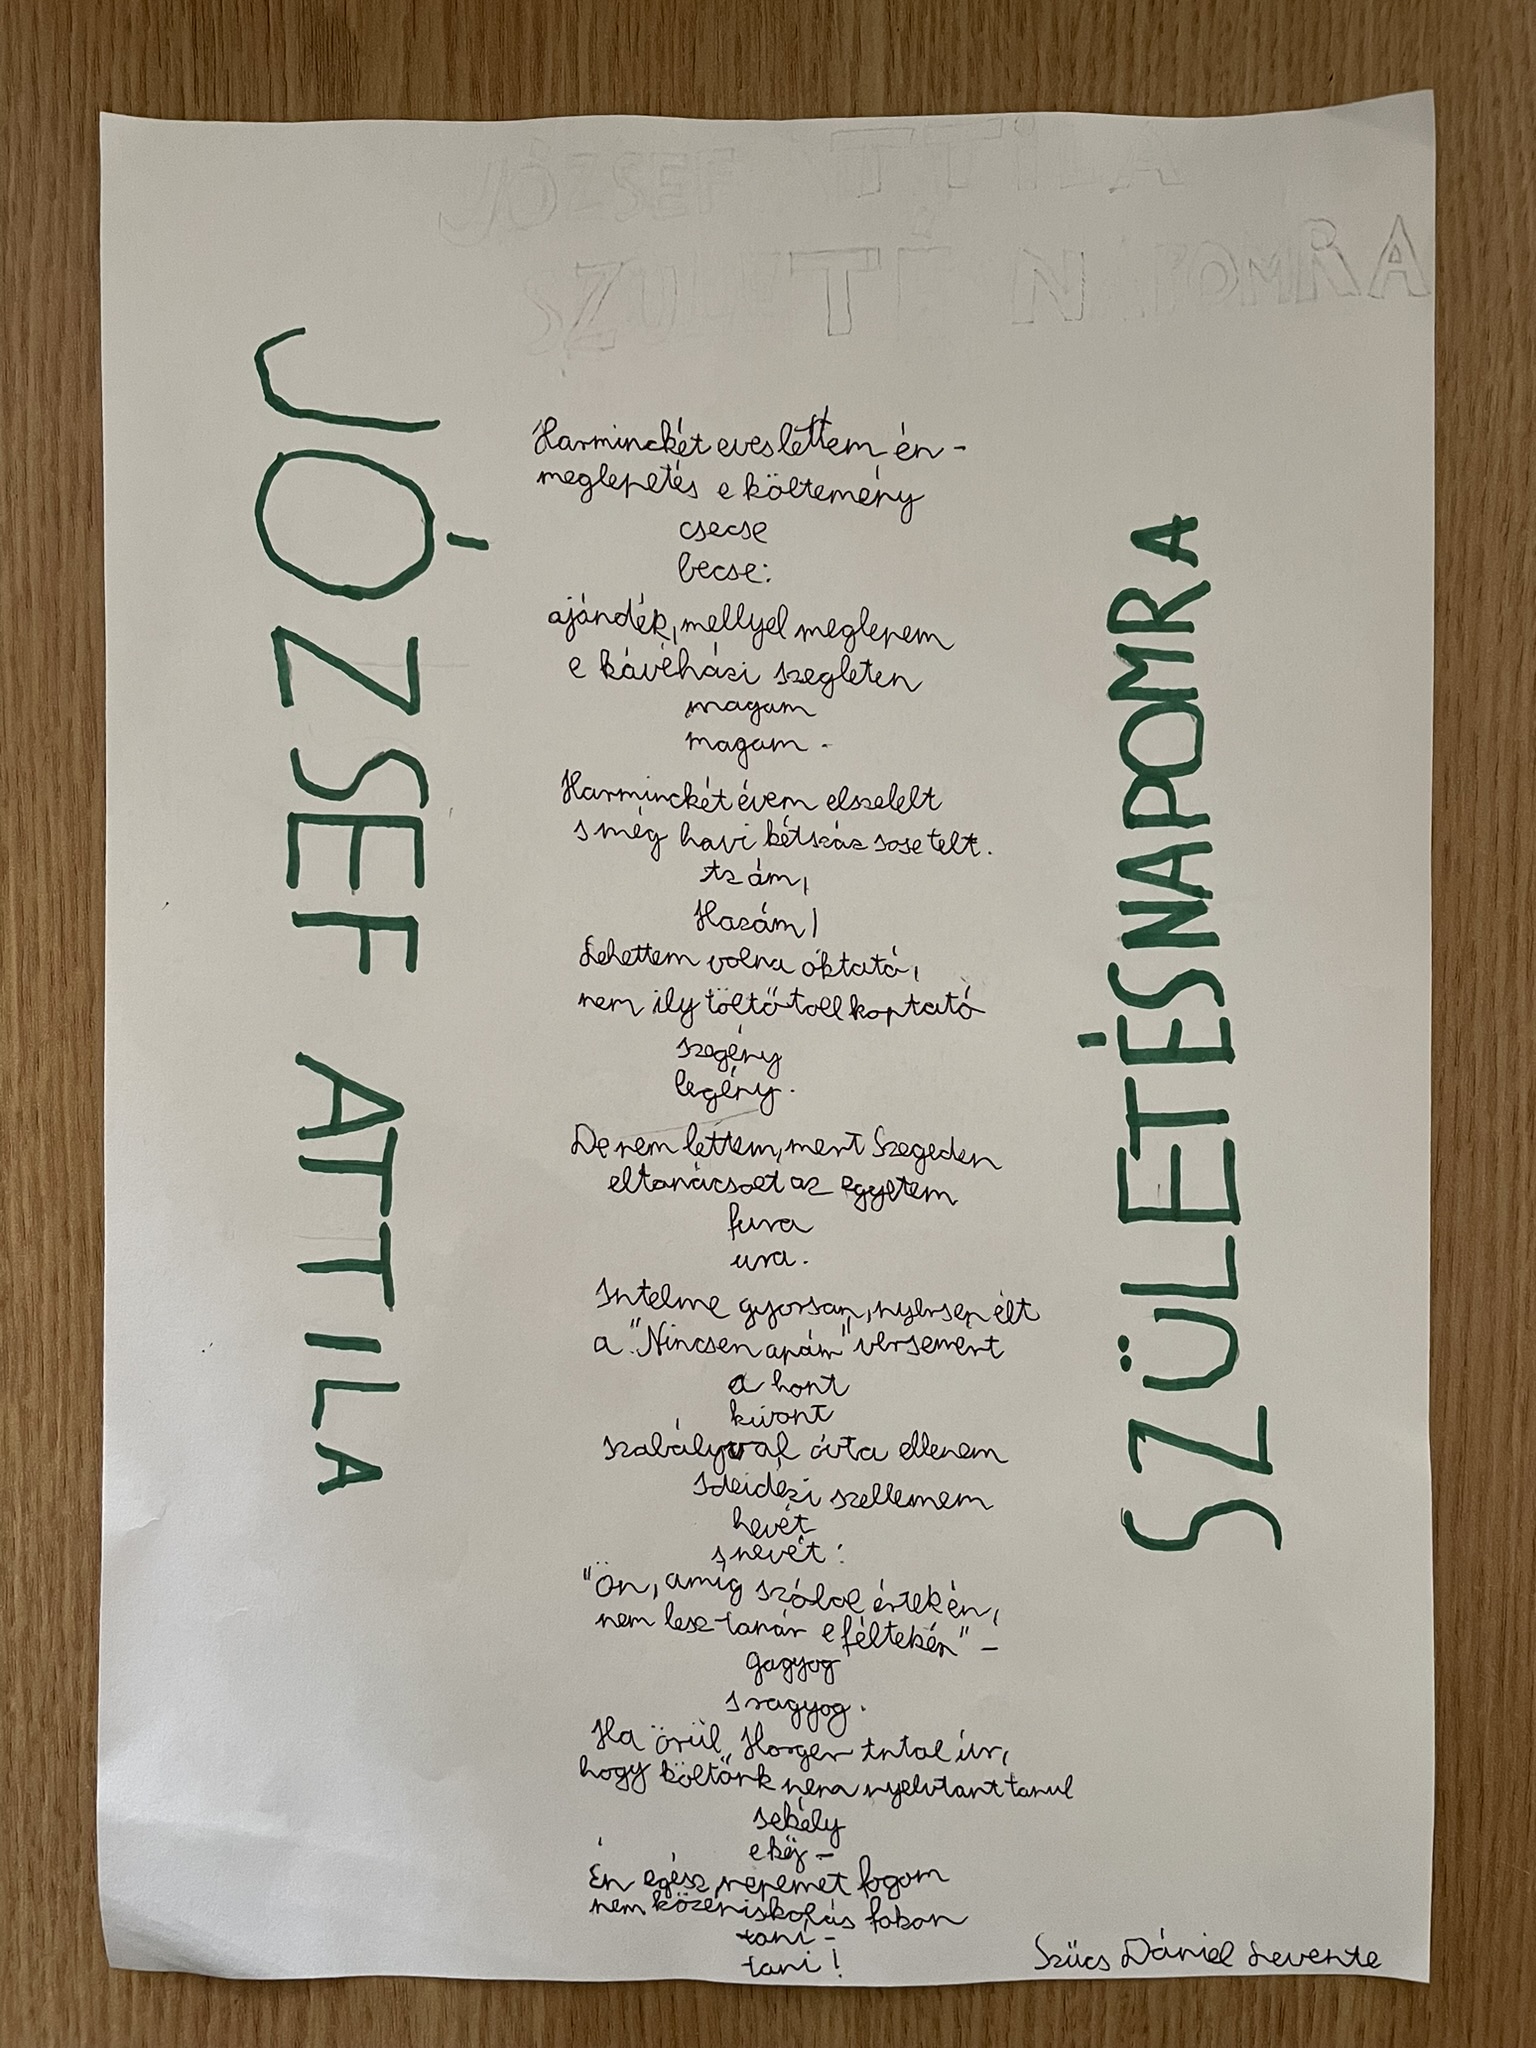 JÓZSEF ATTILA
SZÜLETÉSNAPOMRA
JÓZSEF ATTILA
SZÜLETÉSNAPOMRA
Harminckét eves lettem én -
meglepetés e költemény
csecse
becse:
ajándék, mellyel meglepem
e kávéházi szegleten
magam
magam -
Harminckét évem elszelelt
s még havi kétszáz sose telt.
Az ám,
Hazám!
Lehettem volna oktató,
nem ily töltőtoll koptató
szegény
legény.
De nem lettem, mert Szegeden
eltanácsolt az egyetem
fura
ura.
Intelme gyorsan, nyersen élt
a "Nincsen apám" versemért
a hont
kivont
szabállyal óvta ellenem
Ideidézi szellemem
hevét
s nevét:
"Ön, amíg szóból értek én,
nem lesz tanár e féltekén" -
gagyog
s ragyog.
Ha örül Horger Antal úr,
hogy költőnk nem nyelvtant tanul
sekély
e kéj -
Én egész népemet fogom
nem középiskolás fokon
taní-
tani!
Szücs Dániel Levente